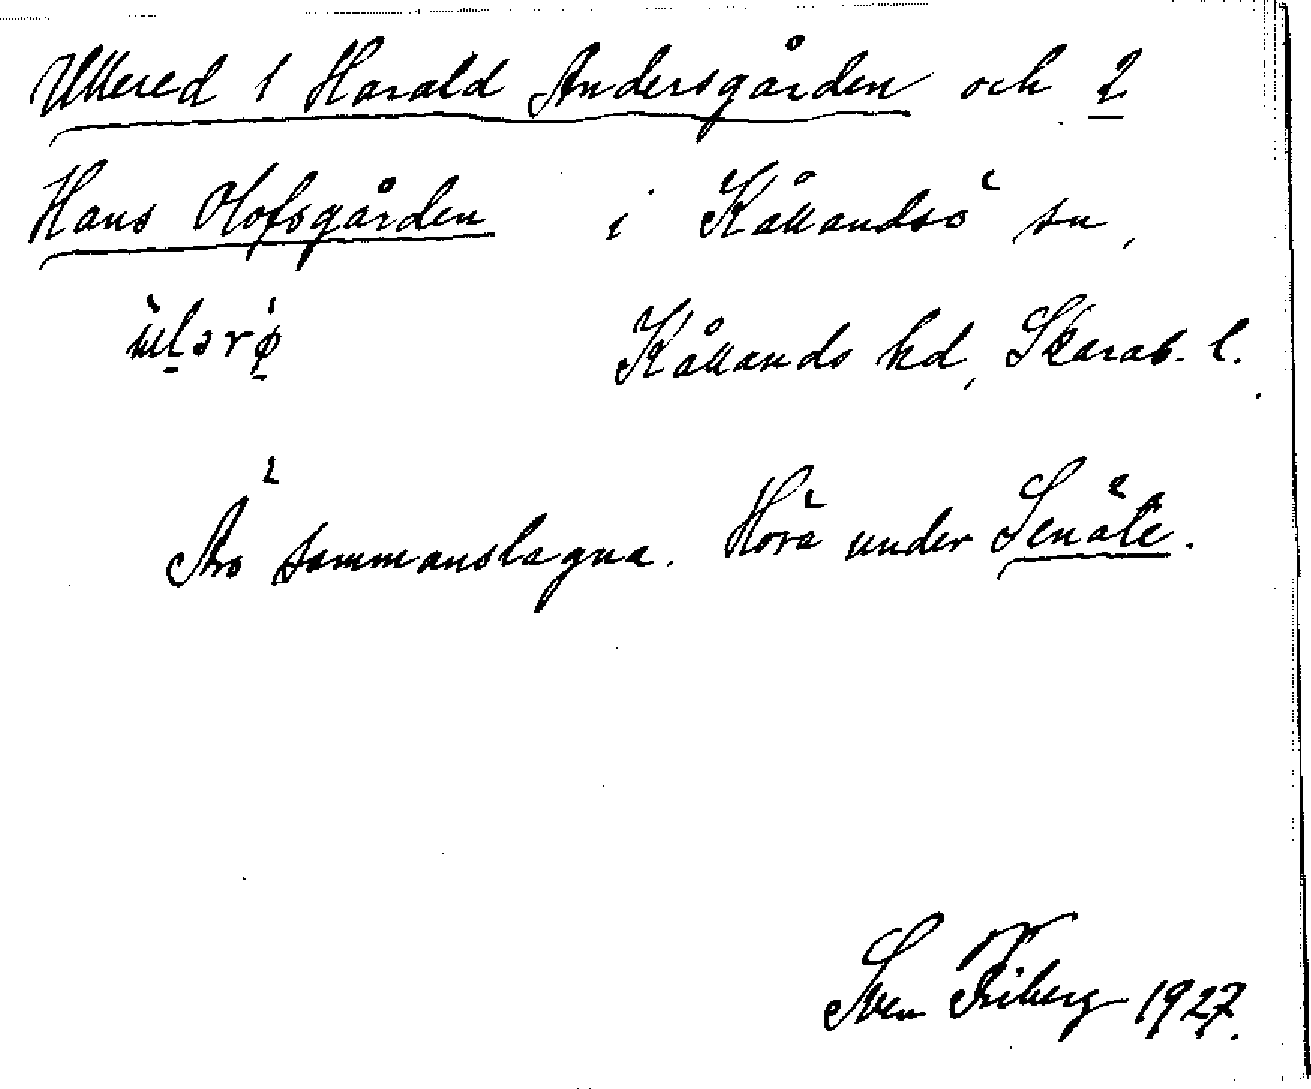 Ullered 1 Harald Andersgården och 2
Hans Olofsgården i Kållandsö sn,
Kållands hd, Skarab. l.
Äro sammanslagna. Höra under Senäte.
Sven Friberg 1927.